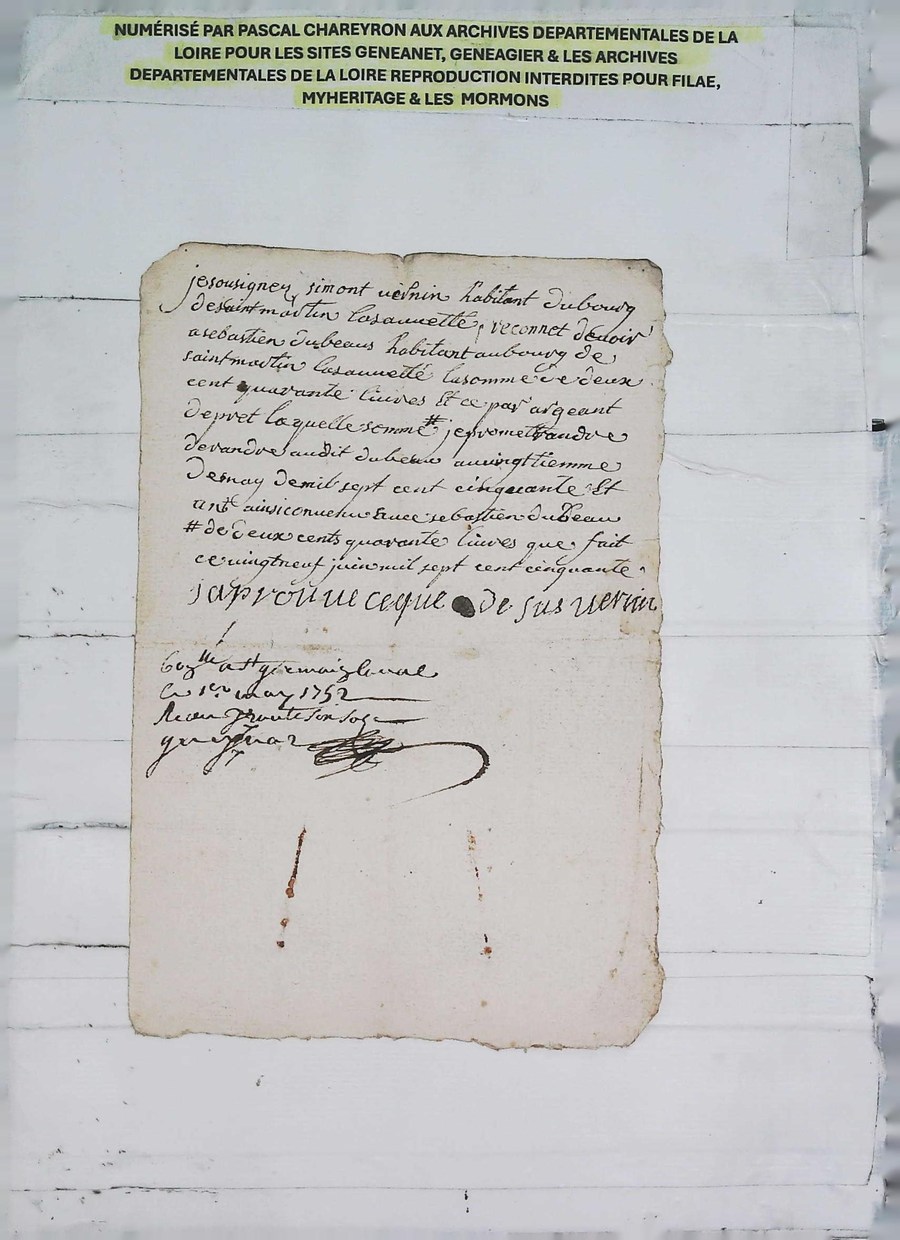 NUMÉRISÉ PAR PASCAL CHAREYRON AUX ARCHIVES DEPARTEMENTALES DE LA
LOIRE POUR LES SITES GENEANET, GENEAGIER & LES ARCHIVES
DEPARTEMENTALES DE LA LOIRE REPRODUCTION INTERDITES POUR FILAE,
MYHERITAGE & LES MORMONS
je sousigney simont vernin habitant du bourg
de saint martin lasauveté, reconnet devoir
a sebastien dubeaus habitant au bourg de
saint martin lasauveté la somme de deux
cent quarante livres Et ce par argeant
de pret laquelle somme # je promet randre
de randre audit dubeau au vingtiemme
de may de mil sept cent cinquante Et
ant ainsi convenu avec sebastien dubeau
# de deux cents quarante livres que fait
ce vingt neuf juin mil sept cent cinquante
japrouve ce que de sus vernin
a st germain laval
le 1er may 1752
Recu